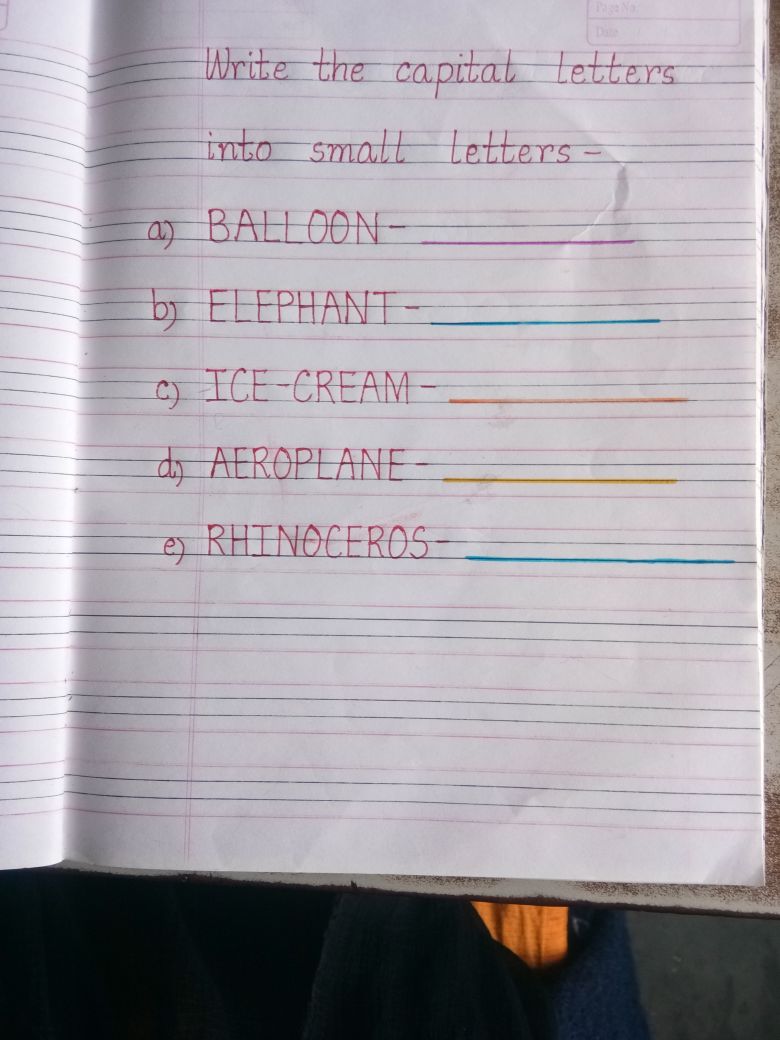 Page No.
Date
Write the capital letters
into small letters -
a) BALLOON -
b) ELEPHANT -
c) ICE-CREAM -
d) AEROPLANE -
e) RHINOCEROS -